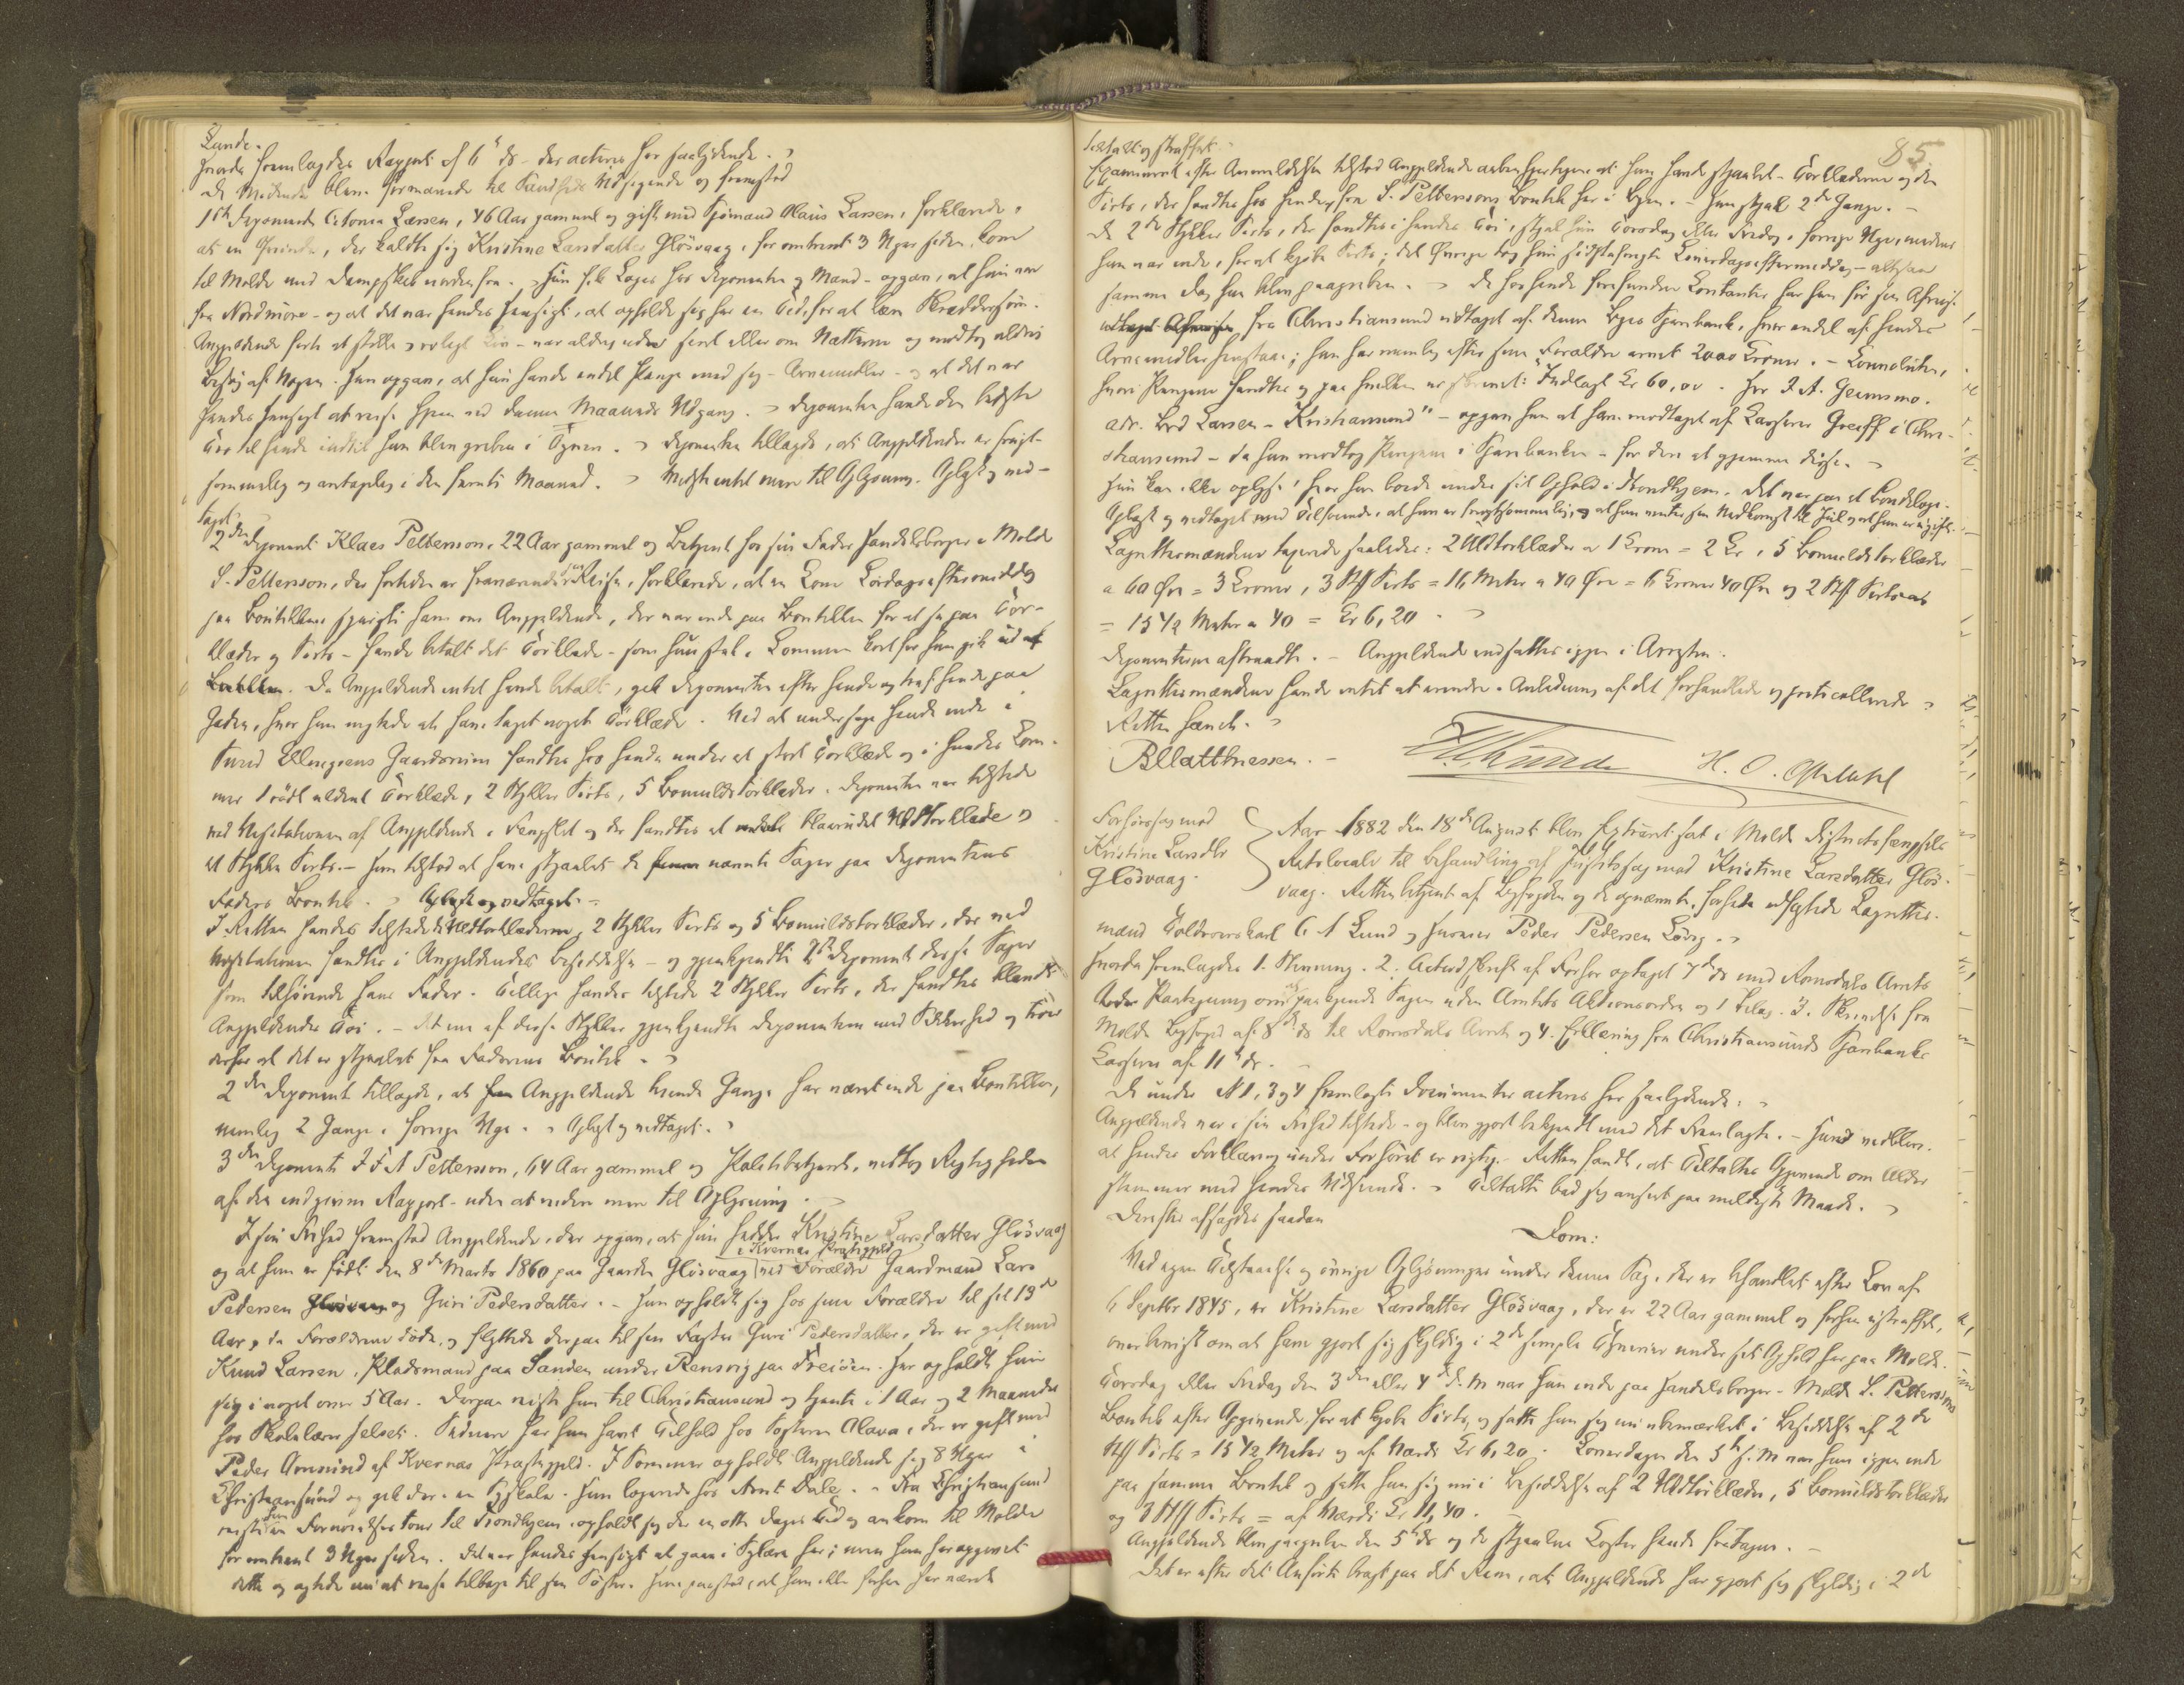 Lunde.
Hvorda fremlagdes Rapport af 6te ds - der acteres her saalydende.
De Mødende bleve formanede til Sandheds Udsigende og fremstod
1ste Deponent Antonia Larsen, 46 Aar gammel og gift med Sjømand Olaus Larsen, forklarede,
at en Qvinde, der kaldte sig Kristine Larsdatter Glösvaag, for omtrent 3 Uger siden kom
til Molde med Dampskib nordenfra. Hun fik Logis hos Deponenten og Mand - opgav, at hun var
fra Nordmöre - og at det var hendes Hensigt, at opholde sig her en Tid, for at lære Skræddersøm.
Angjeldende førte et stille og roligt Liv - var aldrig ude seent eller om Nætterne og modtog aldrig
Besøg af Nogen. Hun opgav, at hun havde endel Penge med sig - Arvemidler - og at det var
hendes Hensigt at reise hjem ved denne Maaneds Udgang. Deponenten havde den bedste
Tro til hende indtil hun blev greben i Tyveri. Deponenten tillagde, at Angjeldende er frugt-
sommelig og antagelig i den femte Maaned. Vidste intet mere til Oplysning. Oplæst og ved-
taget.
2den Deponent Klaus Pettersson, 22 Aar gammel og Betjent hos sin Fader Handelsborger i Molde
S. Pettersson, der fortiden er fraværende paa Reise, forklarede, at en Kone Lørdags eftermiddag
paa Boutikken spurgte ham om Angjeldende, der var inde paa Boutikken for at se paa Tør-
klæder og Sirts - havde betalt det Törklæde - som hun stak i Lommen kort før hun gik ud af
Butikken. Da Angjeldende intet havde betalt, gik Deponenten efter hende og traf hende paa
Gaden, hvor hun nægtede at have taget noget Törklæde. Ved at undersøge hende inde i
Gaardsrum fandtes hos hende under et stort Tørklæde og i hendes Lom-
mer 1 rödt uldent Tørklæde, 2 Stykker Sirts, 5 Bomuldstörklæder. Deponenten var tilstede
ved Visitationen af Angjeldende i Fængslet og der fandtes et blaarudet Uldtörklæde og
et Stykke Sirts. - Hun tilstod at have stjaalet de nævnte Sager paa Deponentens
Faders Boutik. Oplæst og vedtaget. -
I Retten havdes tilstede Uldtørklæderne, 2 Stykker Sirts og 5 Bomuldstørklæder, der ved
Visitationen fandtes i Angjeldendes Besiddelse - og gjenkjendte 2den Deponent disse Sager
som tilhørende hans Fader. Tillige havdes tilstede 2 Stykker Sirts, der fandtes blandt
Angjeldendes Töi. - Et af disse Stykker gjenkjendte Deponenten med Sikkerhed og troer
derfor at det er stjaalet fra Faderens Boutik.
2den Deponent tillagde, at Angjeldende trende Gange har været inde paa Boutikken,
nemlig 2 Gange i forrige Uge. Oplæst og vedtaget.
3die Deponent F. F. A Pettersson, 64 Aar gammel og Politibetjent, vedtog Rigtigheden
af den indgivne Rapport - uden at vide mere til Oplysning.
I sin Frihed fremstod Angjeldende, der opgav, at hun hedder Kristine Larsdatter Glösvaag
i Kvernæs Præstegjeld
og at hun er född den 8de Marts 1860 paa Gaarden Glösvaag ved Forældre Gaardmand Lars
Pedersen og Guri Pedersdatter. - Hun opholdt sig hos sine Forældre til sit 13de
Aar, da Forældrene döde, og flyttede derpaa til sin Faster Guri Pedersdatter, der er gift med
Knud Larsen, Pladsmand paa Sanden under Rensvig paa Freiöen. Her opholdt hun
sig i noget over 5 Aar. Derpaa reiste hun til Christiansund og tjente i 1 Aar og 2 Maaneder
hos Skolelærer Selset. Sidenere har hun havt Tilhold hos Søsteren Olava, der er gift med
Peder Amund af Kvernæs Præstegjeld. I Sommer opholdt Angjeldende sig 8 Uger i
Christiansund og gik der i en Syskole. Hun logerede hos Arnt Dale. Fra Christiansund
reiste hun en Fornøielsestour til Trondhjem, opholdt sig der en otte Dages Tid og ankom til Molde
for omtrent 3 Uger siden. Det var hendes Hensigt at gaa i Sylære her; men hun har opgivet
dette og agtede nu at reise tilbage til sin Søster. Hun paastod, at hun ikke forhen har været
85
tiltalt og straffet.
Examineret efter Anmeldelsen tilstod Angjeldende at hun havde stjaalet Törklæderne og de
Sirts, der fandtes hos hende fra S. Petterssons Boutik her i Byen. - Hun stjal 2de Gange. -
De 2de Stykker Sirts, der fandtes i hendes Töi, stjal hun Torsdag eller Fredag i forrige Uge, medens
hun var inde, for at kjøbe Sirts; det Øvrige tog hun sidstafvigte Lørdagseftermiddag - altsaa
samme Dag hun blev paagreben. De hos hende forefundne Contanter har hun før sin Afreise
fra Christiansund udtaget af denne Byes Sparebank, hvor endel af hendes
Arvemidler henstaae; hun har nemlig efter sine Forældre arvet 2000 Kroner. - Konvolutten,
hvori Pengene fandtes og paa hvilken er skrevet: "Indlagt Kr 60,00. Hr I. A. Grimsmo.
adr. Brd Larsen - Kristiansund" - opgav hun at have modtaget af Kasserer Greiff i Chri-
stiansund - da hun modtog Pengene i Sparebanken - for deri at gjemme disse.
Hun kan ikke oplyse, hvor hun boede under sit Ophold i Trondhjem. Det var paa et Bondelogi.
Oplæst og vedtaget med Tilføiende, at hun er frugtsommelig, og at hun venter sin Nedkomst til Jul og at hun er ugift.
Lagrettesmændene taxerede saaledes: 2 Uldtørklæder a 1 Krone = 2 Kr, 5 Bomuldstørklæder
a 60 Øre = 3 Kroner, 3 Stk Sirts = 16 Meter a 40 Øre = 6 Kroner 40 Øre og 2 Stk Sirts
= 15 1/2 Meter a 40 = Kr 6,20.
Deponenterne aftraadte. - Angjeldende indsattes igjen i Arresten.
Lagrettesmændene havde intet at erindre i Anledning af det Forhandlede og Protocollerede
Retten hævet.
B Matthiessen. -
H. O.
Forhørssag mod
Kristine Larsdtr
Glösvaag.
Aar 1882 den 18de August blev Extraret sat i Molde Districtsfængsels
Retslocale til Behandling af Justitssag mod Kristine Larsdatter Glös-
vaag. Retten betjent af Byfogden og de opnævnte, forhen edfæstede Lagrettes-
mænd Toldroerskarl C A Lund og Snører Peder Pedersen Lövig.
Hvorda fremlagdes 1. Stevning. 2. Actsudskrift af Forhør optaget 7de ds med Romsdals Amts
Paategning om paakjende Sagen uden Amtets Aktionsordre og 1 Bilag. 3. Skrivelse fra
Molde Byfoged af 8de ds til Romsdals Amt og 4. Erklæring fra Christiansunds Sparebanks
Casserer af 11te ds.
De under N 1, 3 og 4 fremlagte Documenter acteres her saalydende:
Angjeldende var i sin Frihed tilstede - og blev gjort bekjendt med det Fremlagte. - Hun vedblev,
at hendes Forklaring under Forhöret er rigtig. Retten fandt, at Tiltaltes Opgivende om Alder
stemmer med hendes Udseende. Tiltalte bad sig anseet paa mildeste Maade.
Derefter afsagdes saadan
Dom:
Ved egen Tilstaaelse og øvrige Oplysninger under denne Sag, der er behandlet efter Lov af
6 Septbr 1845, er Kristine Larsdatter Glösvaag, der er 22 Aar gammel og forhen ustraffet,
overbevist om at have gjort sig skyldig i 2de simple Tyverier under sit Ophold her paa Molde.
Torsdag eller Fredag den 3die eller 4de d. M var hun inde paa Handelsborger i Molde S. Petterssons
Boutik efter Opgivende for at kjøbe Sirts, og satte hun sig ubemærket i Besiddelse af 2de
Stk Sirts = 15 1/2 Meter og af Værdi Kr 6,20. Lørdagen den 5te s. M var hun igjen inde
paa samme Boutik og satte hun sig nu i Besiddelse af 2 Uldtörklæder, 5 Bomuldstörklæder
og 3 Stk Sirts = af Værdi Kr 11,40.
Angjeldende blev paagreben den 5te ds og de stjaalne Koster hende fratagne. -
Det er efter det Anførte bragt paa det Rene, at Angjeldende har gjort sig skyldig i 2de